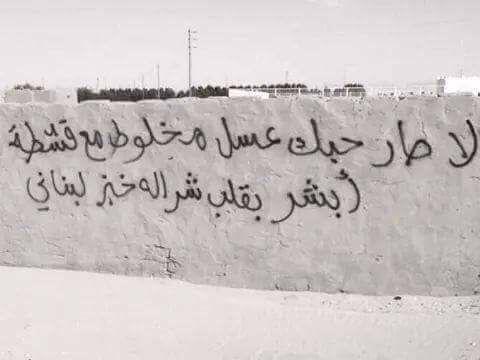 لا صار حبك عسل مخلوط مع قشطة
أبشر بقلب شراله خبز لبناني